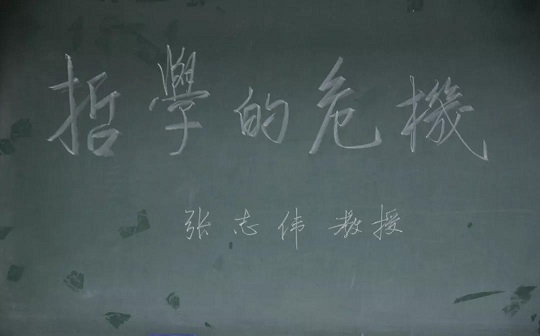 哲學的危機
张志伟教授